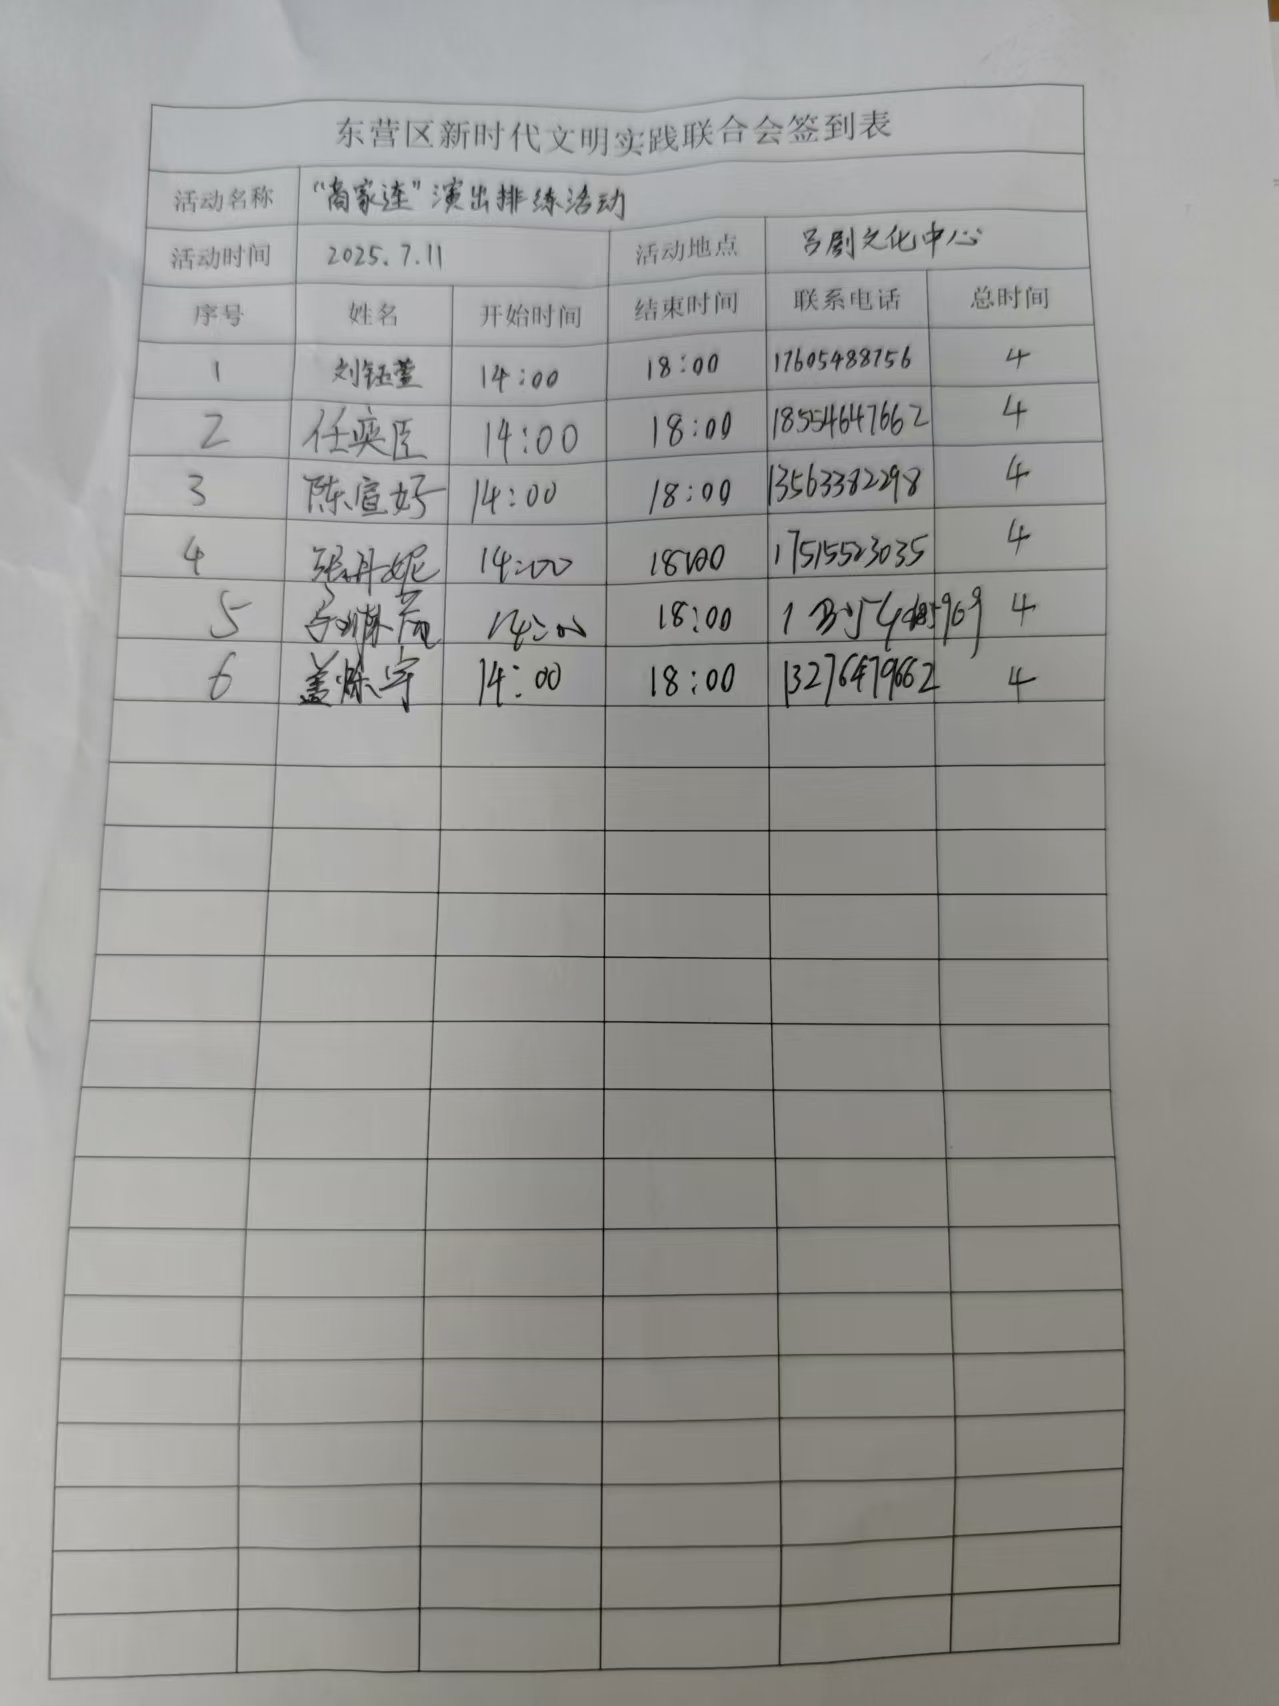 东营区新时代文明实践联合会签到表
活动名称 “商家连”演出排练活动
活动时间 2025.7.11 活动地点 吕剧文化中心
序号 姓名 开始时间 结束时间 联系电话 总时间
1 刘钰萱 14:00 18:00 17605488756 4
2 任奕臣 14:00 18:00 18554647662 4
3 陈宣妤 14:00 18:00 13563382298 4
4 张丹妮 14:00 18:00 17515523035 4
5 14:00 18:00 4
6 盖烁宇 14:00 18:00 13276479662 4